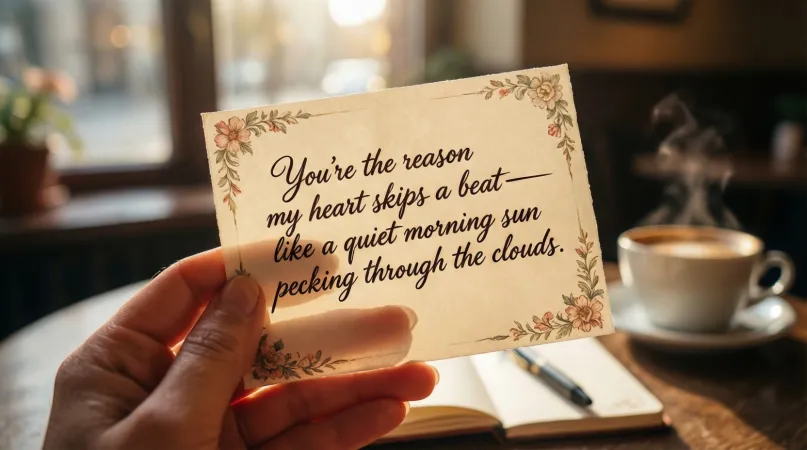 You're the reason
my heart skips a beat—
like a quiet morning sun
pecking through the clouds.